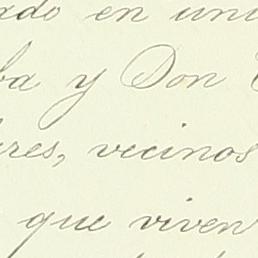 ado en uni
ba y Don
res, vecinos
que viven